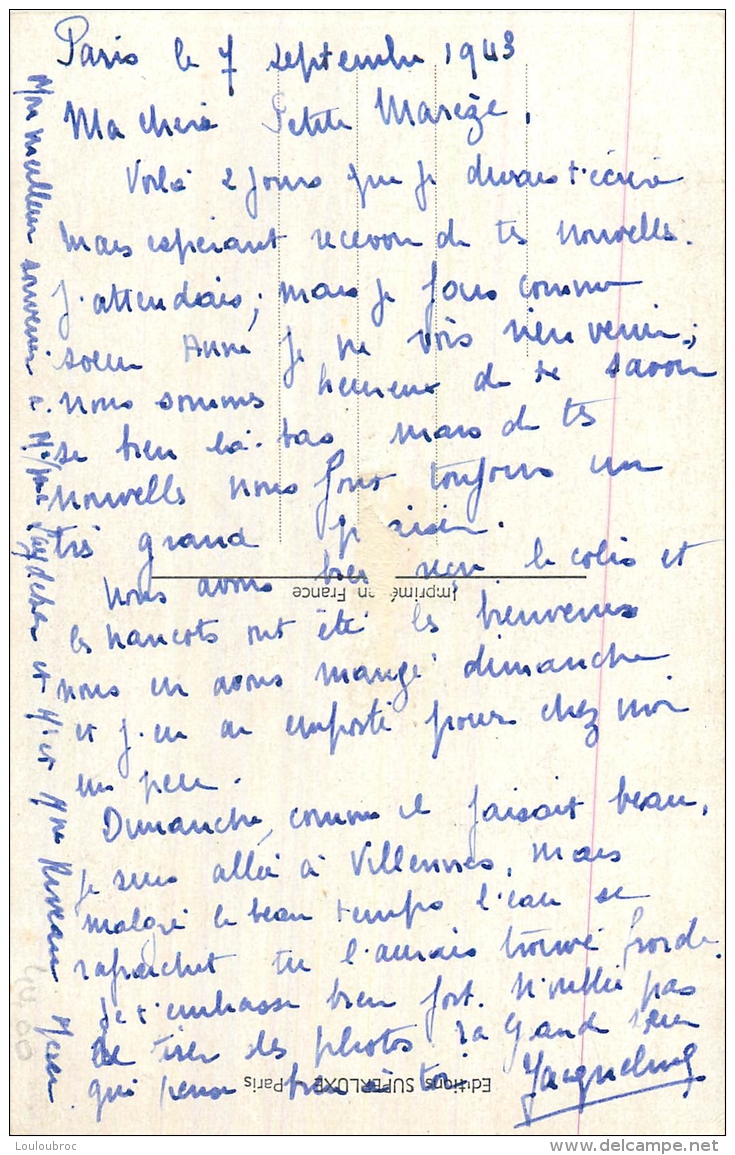 Paris le 7 septembre 1943
Ma chère Petite
Voilà 2 jours que je devais t'écrire
mais espérant recevoir de tes nouvelles.
J'attendais; mais je fais comme
soeur Anne je ne vois rien venir;
nous sommes heureux de te savoir
se bien là-bas mais de tes
nouvelles nous font toujours un
très grand plaisir.
Nous avons bien reçu le colis et
les haricots ont été les bienvenus
nous en avons mangé dimanche
et j'en ai emporté pour chez moi
un peu.
Dimanche, comme il faisait beau,
je suis allée à Villennes, mais
malgré le beau temps l'eau se
rafraichit tu l'aurais trouvé froide.
Je t'embrasse bien fort. N'oublie pas
de tirer des photos. Ta grande soeur
qui pense bien à toi. Jacqueline
Mon meilleur souvenir à Mr/Mme et Mr et Mme
Imprimé en France
Editions SUPERLUXE - Paris
44.00
Louloubroc
www.delcampe.net